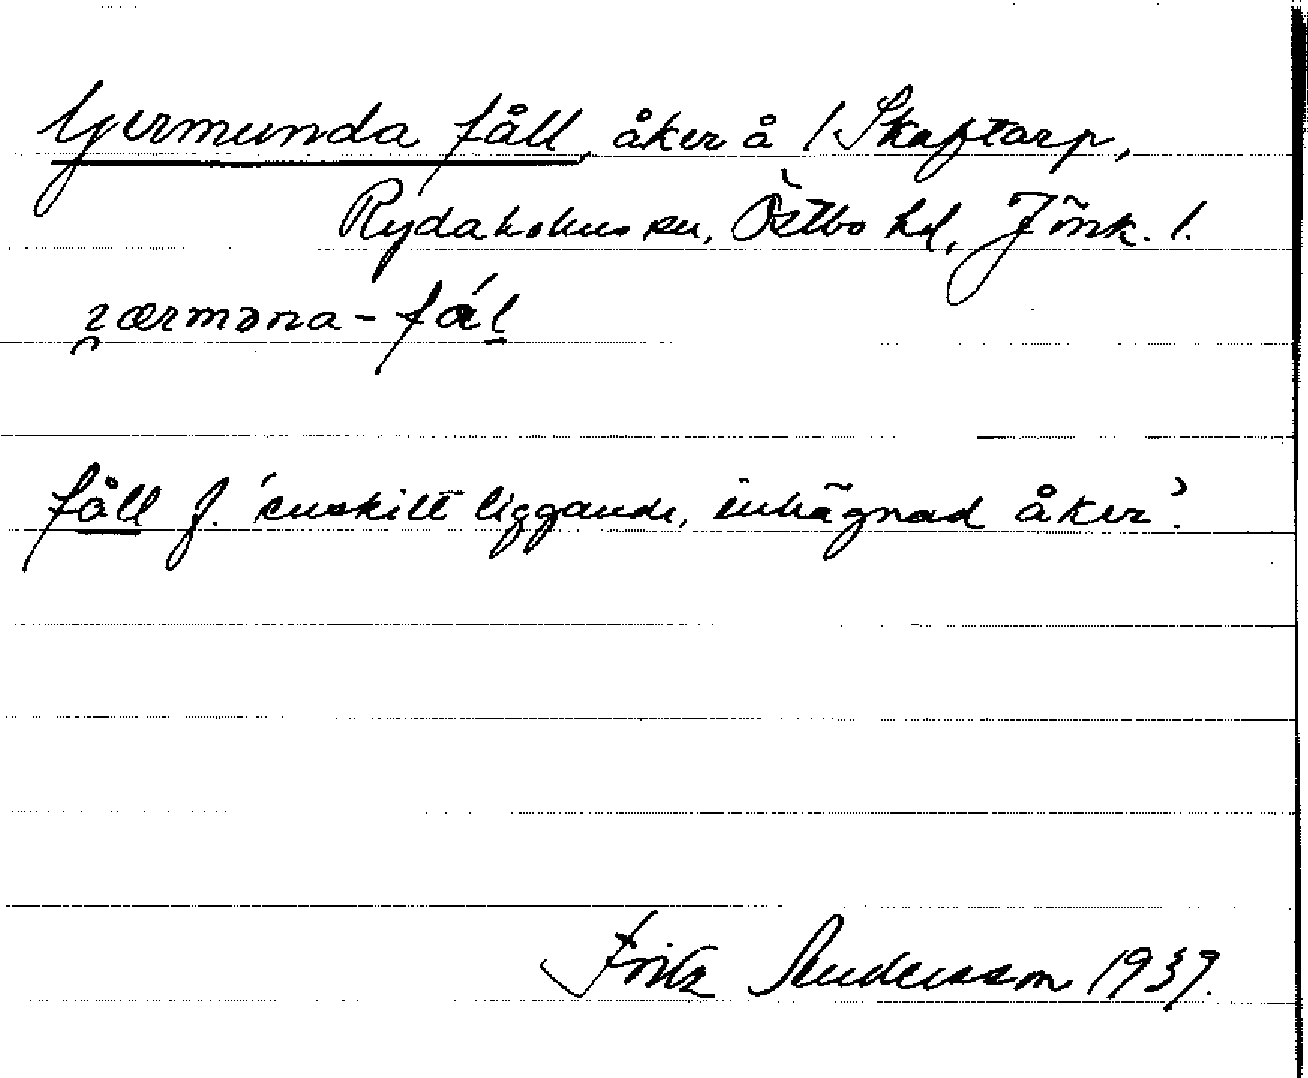 Germunda fåll, åker å 1 Skaftarp,
Rydaholms sn, Östbo hd, Jönk. l.
fåll f. 'enskilt liggande, inhägnad åker'.
Fritz Andersson 1937.